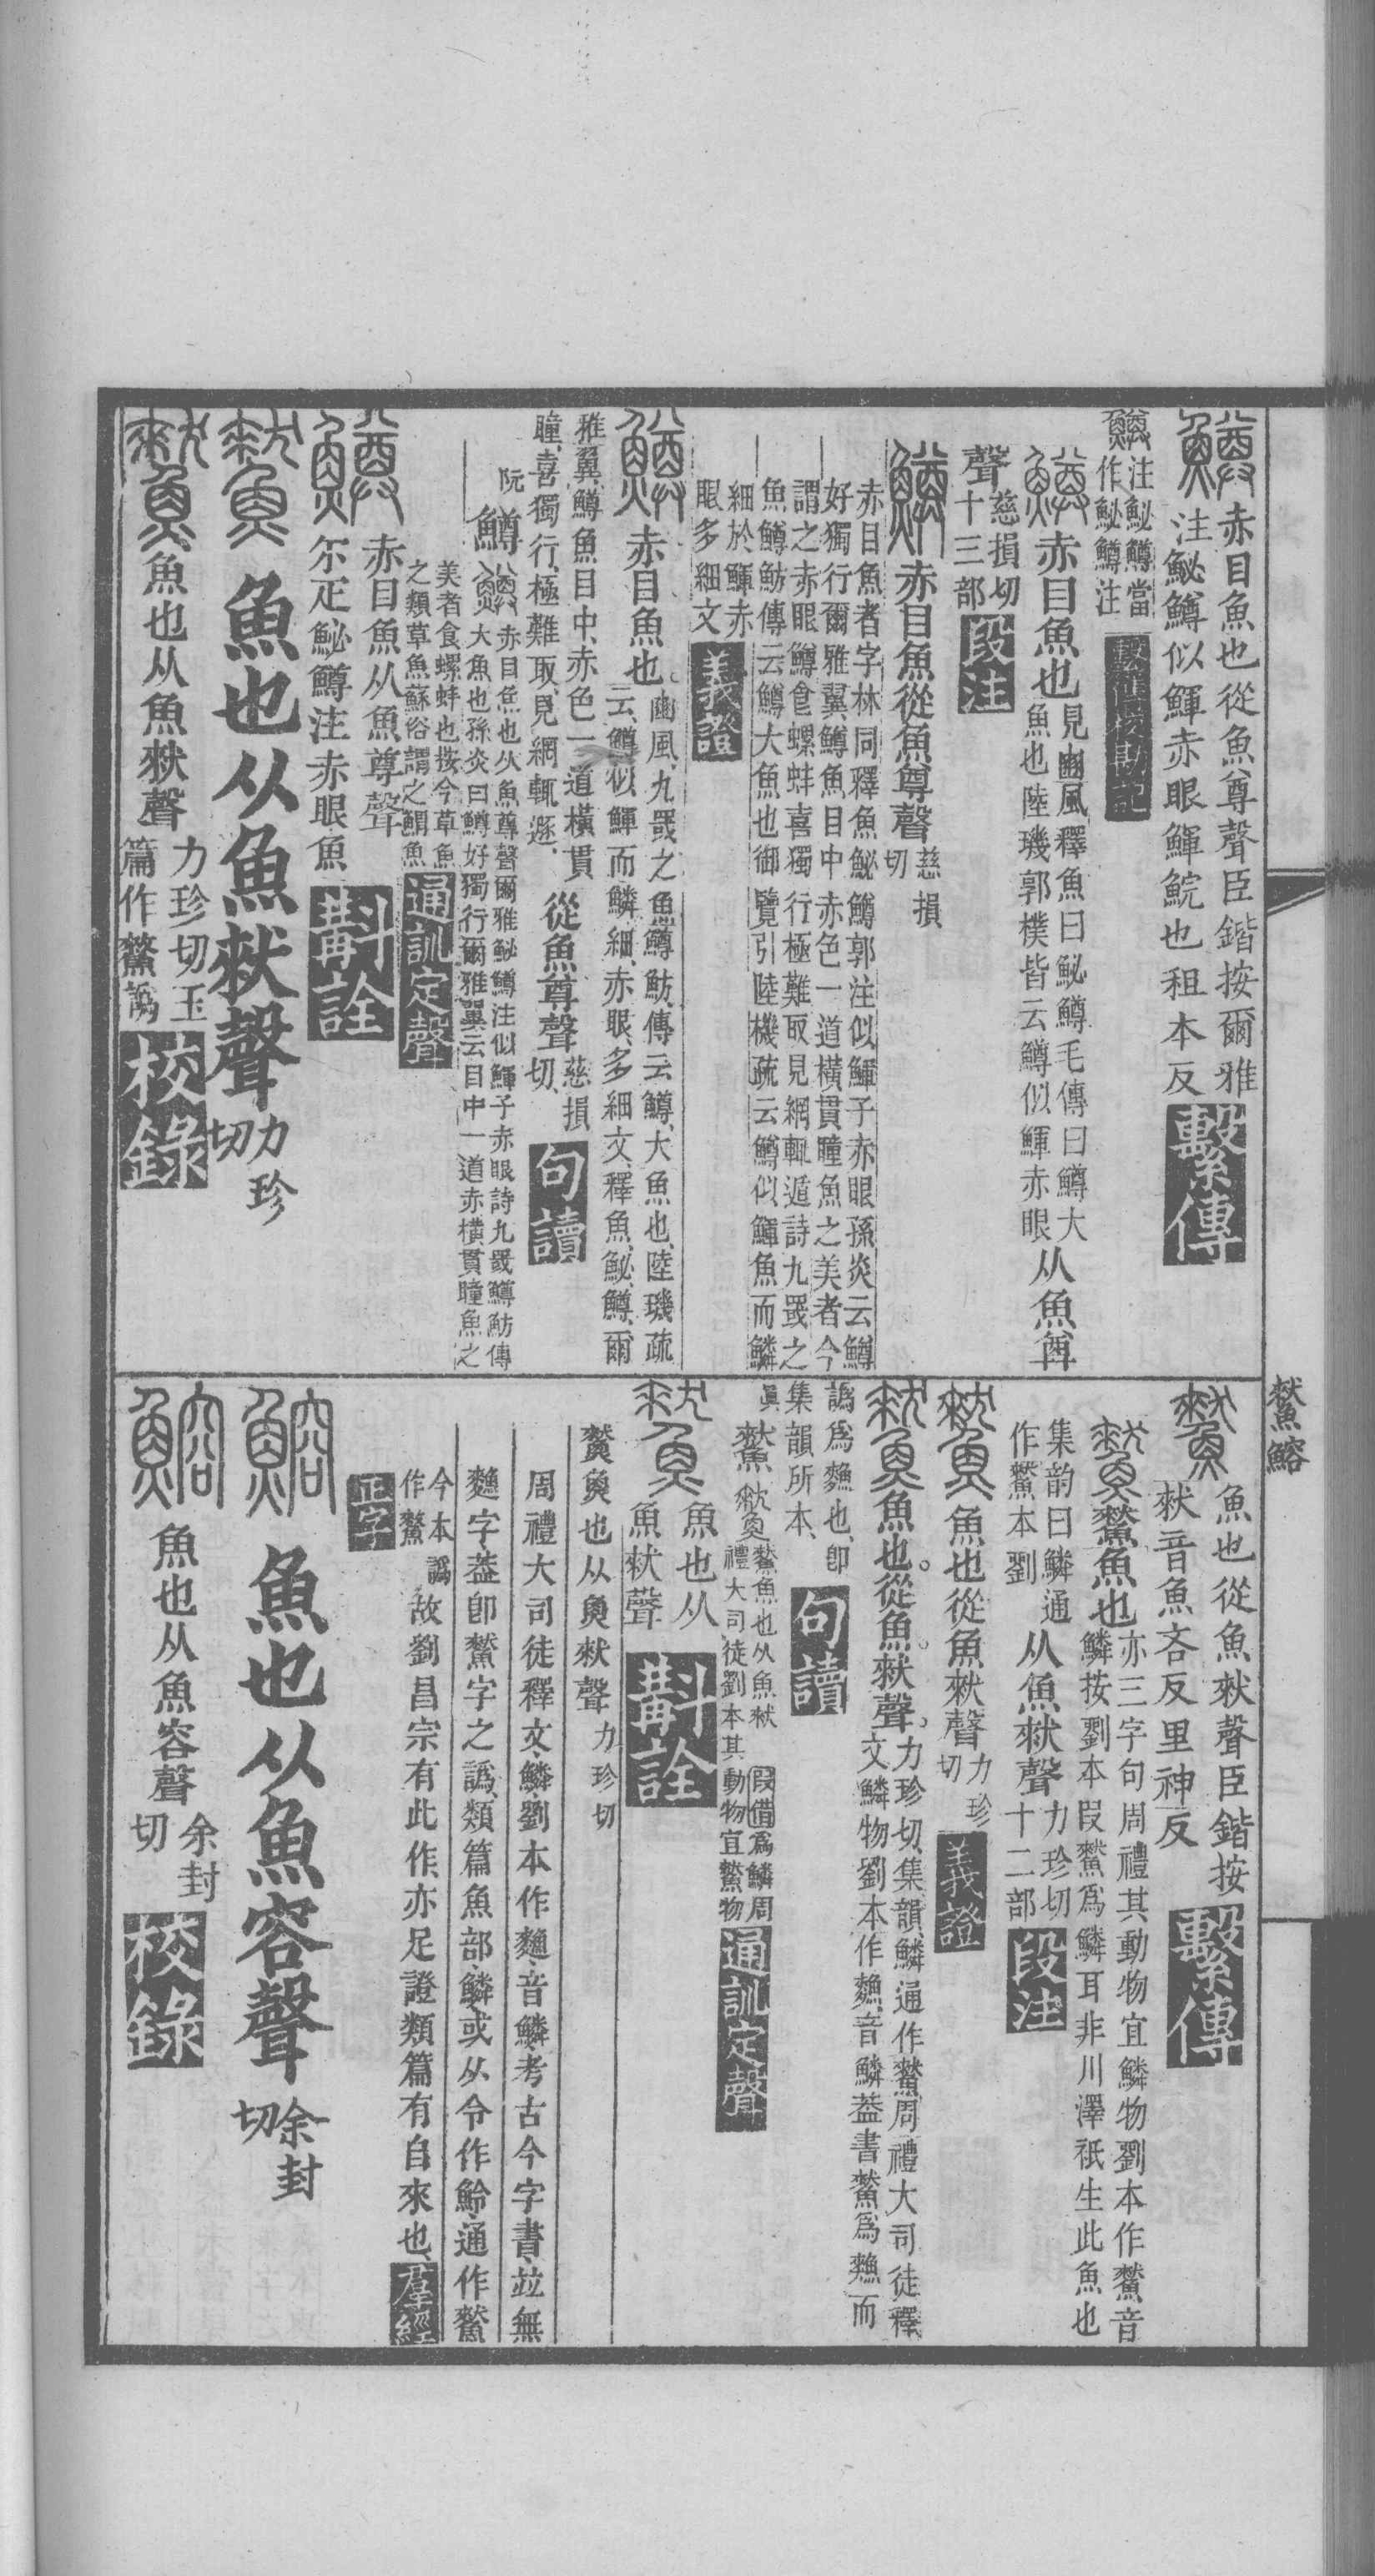 赤目魚也從魚尊聲臣鍇按爾雅
注鮅鱒似鯶赤眼鯶鯇也租本反
繫傳
注鮅鱒當
作鮅鱒注
繫傳校勘記
赤目魚也
見豳風釋魚曰鮅鱒毛傳曰鱒大
魚也陸璣郭樸皆云鱒似鯶赤眼
从魚尊
聲
慈損切
十三部
段注
赤目魚從魚尊聲
慈損
切
赤目魚者字林同釋魚鮅鱒郭注似鯶子赤眼孫炎云鱒
好獨行爾雅翼鱒魚目中赤色一道橫貫瞳魚之美者今
謂之赤眼鱒食螺蚌喜獨行極難取見網輒遁詩九罭之
魚鱒魴傳云鱒大魚也御覽引陸機疏云鱒似鯶魚而鱗
細於鯶赤
眼多細文
義證
赤目魚也
豳風九罭之魚鱒魴傳云鱒大魚也陸璣疏
云鱒似鯶而鱗細赤眼多細文釋魚鮅鱒爾
雅翼鱒魚目中赤色一道橫貫
瞳喜獨行極難取見網輒遯
從魚尊聲
慈損
切
句讀
阮
鱒
赤目魚也从魚尊聲爾雅鮅鱒注似鯶子赤眼詩九罭鱒魴傳
大魚也孫炎曰鱒好獨行爾雅翼云目中一道赤橫貫瞳魚之
美者食螺蚌也按今草魚
之類草魚蘇俗謂之鯶魚
通訓定聲
赤目魚从魚尊聲
尔疋鮅鱒注赤眼魚
斠詮
魚也从魚㷠聲
力珍
切
魚也从魚㷠聲
力珍切玉
篇作䲰譌
校錄
魚也從魚㷠聲臣鍇按
㷠音魚吝反里神反
繫傳
集韵曰鱗通
作䲰本劉
䲰魚也
亦三字句周禮其動物宜鱗物劉本作䲰音
鱗按劉本叚䲰爲鱗耳非川澤祇生此魚也
从魚㷠聲
力珍切
十二部
段注
魚也從魚㷠聲
力珍
切
義證
魚也從魚㷠聲
力珍切集韻鱗通作䲰周禮大司徒釋
文鱗物劉本作䲰音鱗蓋書䲰爲䲰而
譌爲䲰也卽
集韻所本
句讀
眞
䲰
䲰魚也从魚㷠
叚借爲鱗周
禮大司徒劉本其動物宜䲰物
通訓定聲
魚也从
魚㷠聲
斠詮
䲰魚也从魚㷠聲力珍切
周禮大司徒釋文鱗劉本作䲰音鱗考古今字書竝無
䲰字葢卽䲰字之譌類篇魚部鱗或从令作魿通作䲰
今本譌
作䲰
故劉昌宗有此作亦足證類篇有自來也
羣經
正字
魚也从魚容聲
余封
切
魚也从魚容聲
余封
切
校錄
䲰鰫